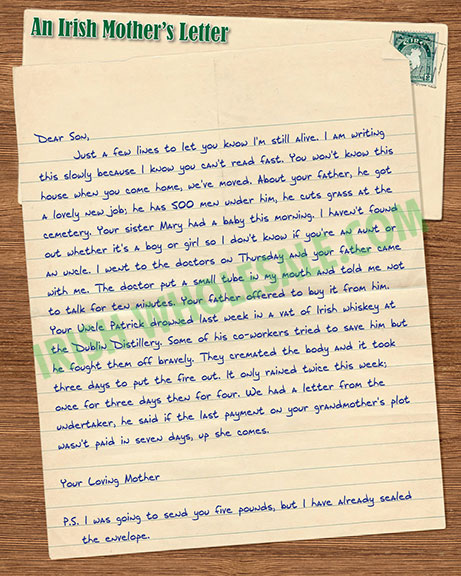 An Irish Mother's Letter
Dear Son,
Just a few lines to let you know I'm still alive. I am writing
this slowly because I know you can't read fast. You won't know this
house when you come home, we've moved. About your father, he got
a lovely new job; he has 500 men under him, he cuts grass at the
cemetery. Your sister Mary had a baby this morning. I haven't found
out whether it's a boy or girl so I don't know if you're an aunt or
an uncle. I went to the doctors on Thursday and your father came
with me. The doctor put a small tube in my mouth and told me not
to talk for ten minutes. Your father offered to buy it from him.
Your Uncle Patrick drowned last week in a vat of Irish whiskey at
the Dublin Distillery. Some of his co-workers tried to save him but
he fought them off bravely. They cremated the body and it took
three days to put the fire out. It only rained twice this week;
once for three days then for four. We had a letter from the
undertaker, he said if the last payment on your grandmother's plot
wasn't paid in seven days, up she comes.
Your Loving Mother
P.S. I was going to send you five pounds, but I have already sealed
the envelope.
IRISHWHOLESALE.COM